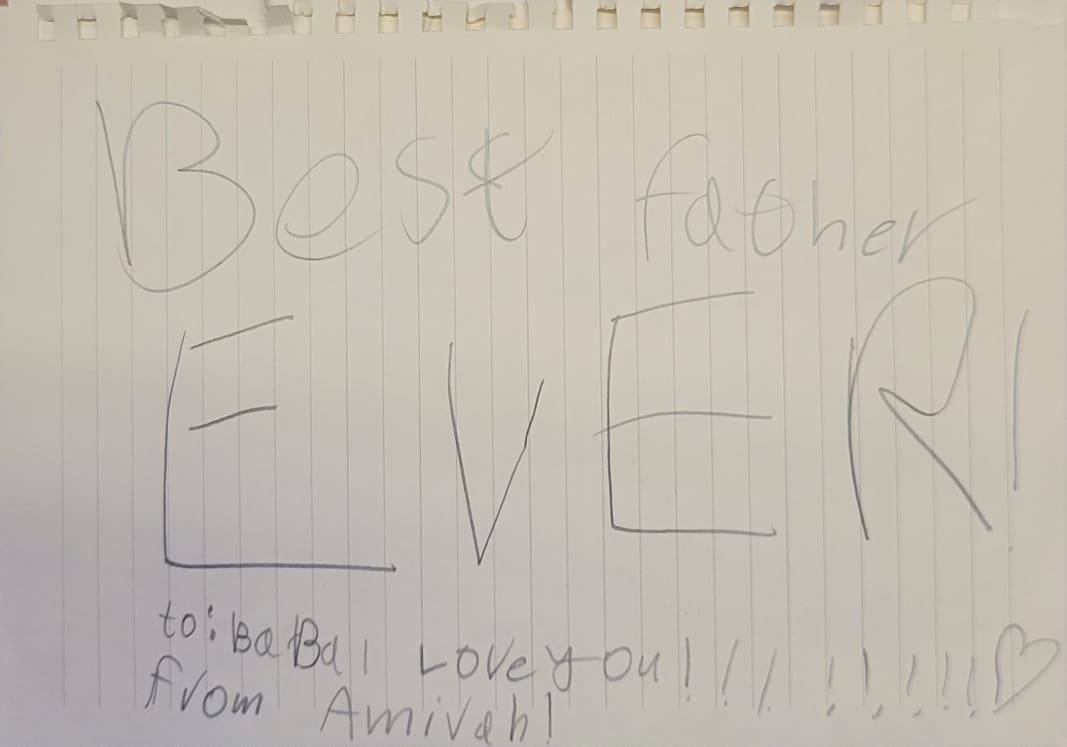 Best father
EVER!
to: BaBa I Love you!!! !!!!!♡
from Amirah!